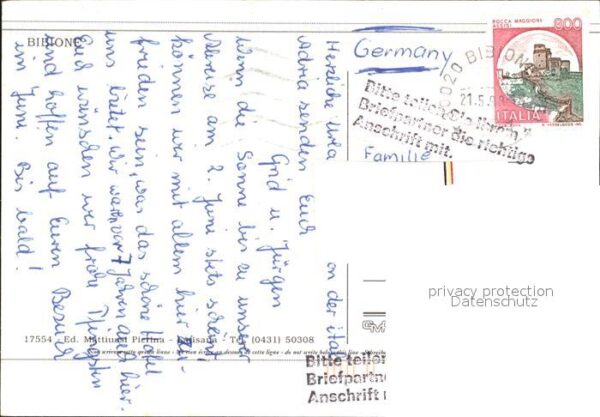 BIBIONE
Germany
Herzliche
Adria senden Euch
Grid u. Jürgen
Wenn die Sonne bis zu unserer
Abreise am 2. Juni stets scheint
können wir mit allem hier zu-
frieden sein, was das schöne Hotel
uns bietet. Wir waren vor 7 Jahren auch hier.
Euch wünschen wir frohe Pfingsten
und hoffen auf Euren Besuch
im Juni. Bis bald!
ROCCA MAGGIORE
ASSISI
800
ITALIA
BIBIONE
21.5.9
Bitte teilen Sie Ihrem
Briefpartner die richtige
Anschrift mit.
Familie
privacy protection
Datenschutz
17554 - Ed. Mattiussi Pierina - Latisana - Tel. (0431) 50308
Bitte teilen
Briefpartne
Anschrift